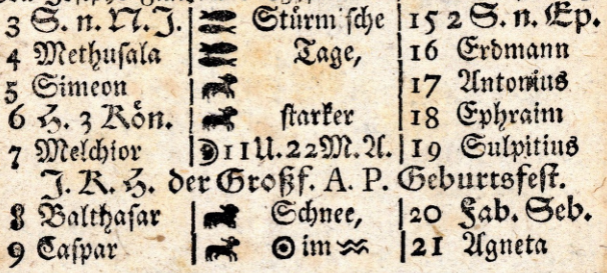 3 S. n. N. J. Stürmische 15 2 S. n. Ep.
4 Methusala Tage, 16 Erdmann
5 Simeon 17 Antonius
6 H. 3 Kön. starker 18 Ephraim
7 Melchior ☽ 11 U. 22 M. A. 19 Sulpitius
J. K. H. der Großf. A. P. Geburtsfest.
8 Balthasar Schnee, 20 Fab. Seb.
9 Caspar ☉ im ♒ 21 Agneta